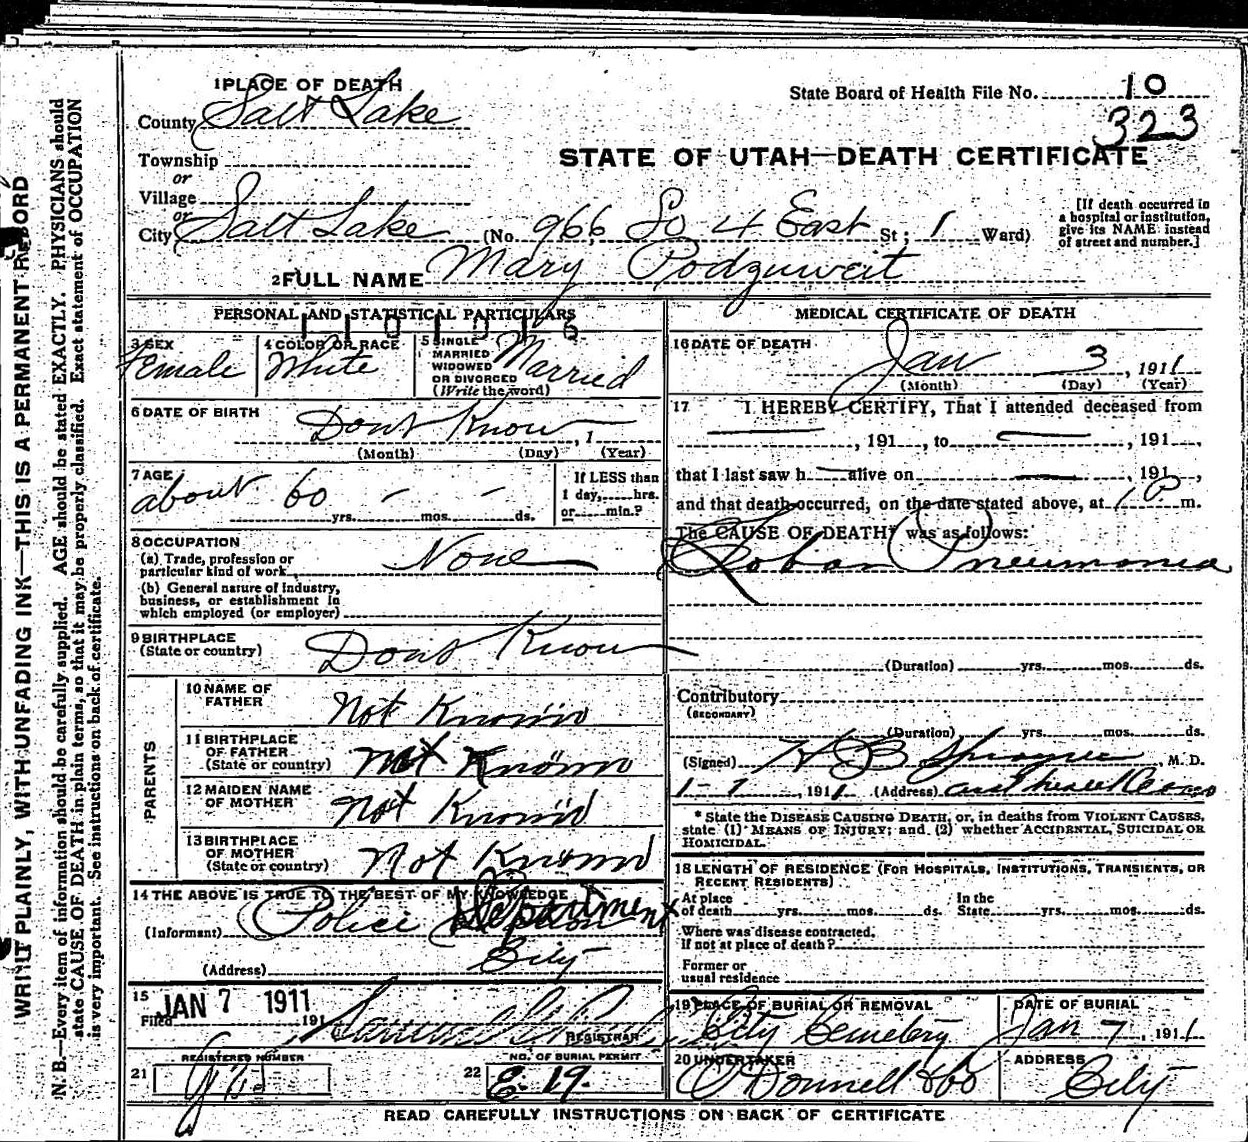 1 PLACE OF DEATH
County Salt Lake
Township
or
Village
or
City Salt Lake (No. 966 So 4 East St; 1 Ward)
State Board of Health File No. 10
323
STATE OF UTAH—DEATH CERTIFICATE
[If death occurred in
a hospital or institution,
give its NAME instead
of street and number.]
2 FULL NAME Mary Podzuweit
PERSONAL AND STATISTICAL PARTICULARS
3 SEX
Female
4 COLOR OR RACE
White
5 SINGLE
MARRIED
WIDOWED
OR DIVORCED
(Write the word)
Married
6 DATE OF BIRTH
Dont Know, 1
(Month) (Day) (Year)
7 AGE
about 60 - -
yrs. mos. ds.
If LESS than
1 day, hrs.
or min.?
8 OCCUPATION
(a) Trade, profession or
particular kind of work None
(b) General nature of industry,
business, or establishment in
which employed (or employer)
9 BIRTHPLACE
(State or country) Dont Know
PARENTS
10 NAME OF
FATHER Not Known
11 BIRTHPLACE
OF FATHER
(State or country) Not Known
12 MAIDEN NAME
OF MOTHER Not Known
13 BIRTHPLACE
OF MOTHER
(State or country) Not Known
14 THE ABOVE IS TRUE TO THE BEST OF MY KNOWLEDGE
(Informant) Police Department
(Address) City
15
Filed JAN 7 1911 191
REGISTRAR
REGISTERED NUMBER
21
NO. OF BURIAL PERMIT
22 E-19.
MEDICAL CERTIFICATE OF DEATH
16 DATE OF DEATH
Jan 3, 1911
(Month) (Day) (Year)
17 I HEREBY CERTIFY, That I attended deceased from
, 191 , to , 191 ,
that I last saw h alive on , 191 ,
and that death occurred, on the date stated above, at 1 P m.
The CAUSE OF DEATH* was as follows:
Lobar Pneumonia
(Duration) yrs. mos. ds.
Contributory
(SECONDARY)
(Duration) yrs. mos. ds.
(Signed) H B Sprague, M. D.
1-7, 1911 (Address)
* State the DISEASE CAUSING DEATH, or, in deaths from VIOLENT CAUSES,
state (1) MEANS OF INJURY; and (2) whether ACCIDENTAL, SUICIDAL OR
HOMICIDAL.
18 LENGTH OF RESIDENCE (FOR HOSPITALS, INSTITUTIONS, TRANSIENTS, OR
RECENT RESIDENTS)
At place
of death yrs. mos. ds.
In the
State yrs. mos. ds.
Where was disease contracted.
If not at place of death?
Former or
usual residence
19 PLACE OF BURIAL OR REMOVAL
City Cemetery
DATE OF BURIAL
Jan 7, 1911
20 UNDERTAKER
O'Donnell & Co
ADDRESS
City
READ CAREFULLY INSTRUCTIONS ON BACK OF CERTIFICATE
WRITE PLAINLY, WITH UNFADING INK—THIS IS A PERMANENT RECORD
N. B.—Every item of information should be carefully supplied. AGE should be stated EXACTLY. PHYSICIANS should
state CAUSE OF DEATH in plain terms, so that it may be properly classified. Exact statement of OCCUPATION
is very important. See instructions on back of certificate.